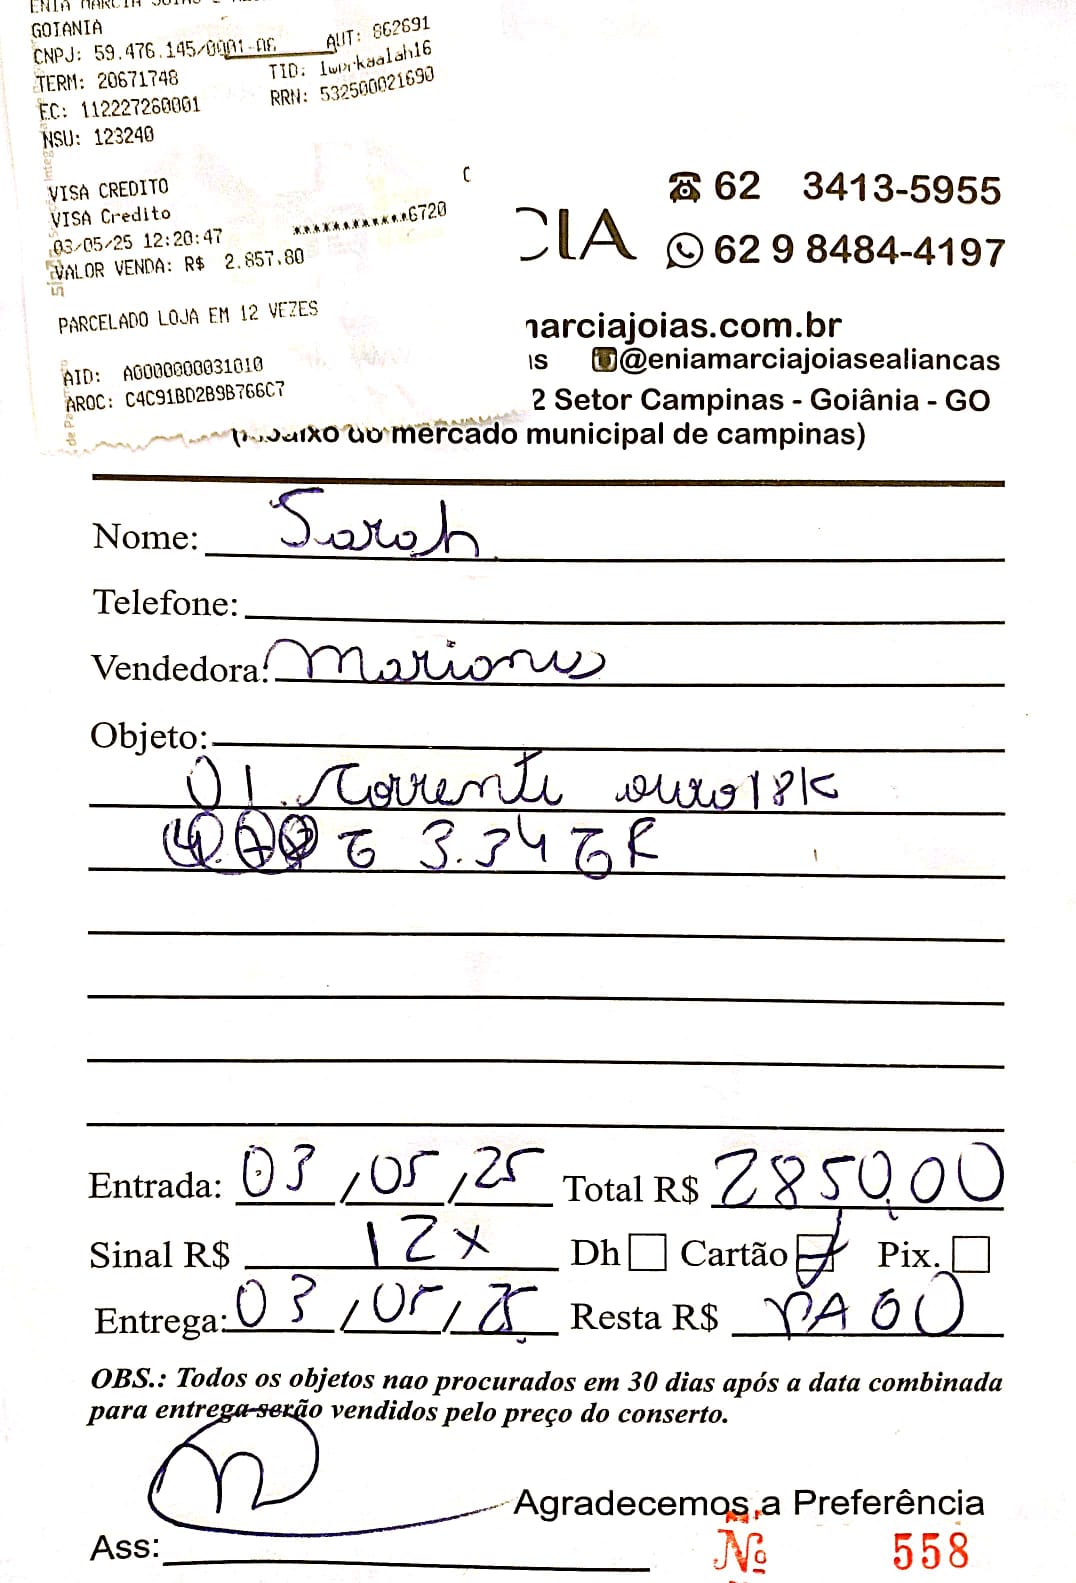 GOIANIA
CNPJ: 59.476.145/0001-06 AUT: 862691
TERM: 20671748 TID: 1wprkaalah16
EC: 112227260001 RRN: 532500021690
NSU: 123240
VISA CREDITO C
VISA Credito
03/05/25 12:20:47 ************6720
VALOR VENDA: R$ 2.857,80
PARCELADO LOJA EM 12 VEZES
AID: A0000000031010
ARQC: C4C91BD2B9B766C7
62 3413-5955
CIA
62 9 8484-4197
marciajoias.com.br
is @eniamarciajoiasealiancas
2 Setor Campinas - Goiânia - GO
mercado municipal de campinas)
Nome: Sarah
Telefone:
Vendedora: Mariana
Objeto:
01 Corrente ouro 18K
3.34 GR
Entrada: 03/05/25 Total R$ 2850,00
Sinal R$ 12x Dh Cartão Pix.
Entrega: 03/05/25 Resta R$ PAGO
OBS.: Todos os objetos nao procurados em 30 dias após a data combinada
para entrega serão vendidos pelo preço do conserto.
Agradecemos a Preferência
Ass: Nº 558